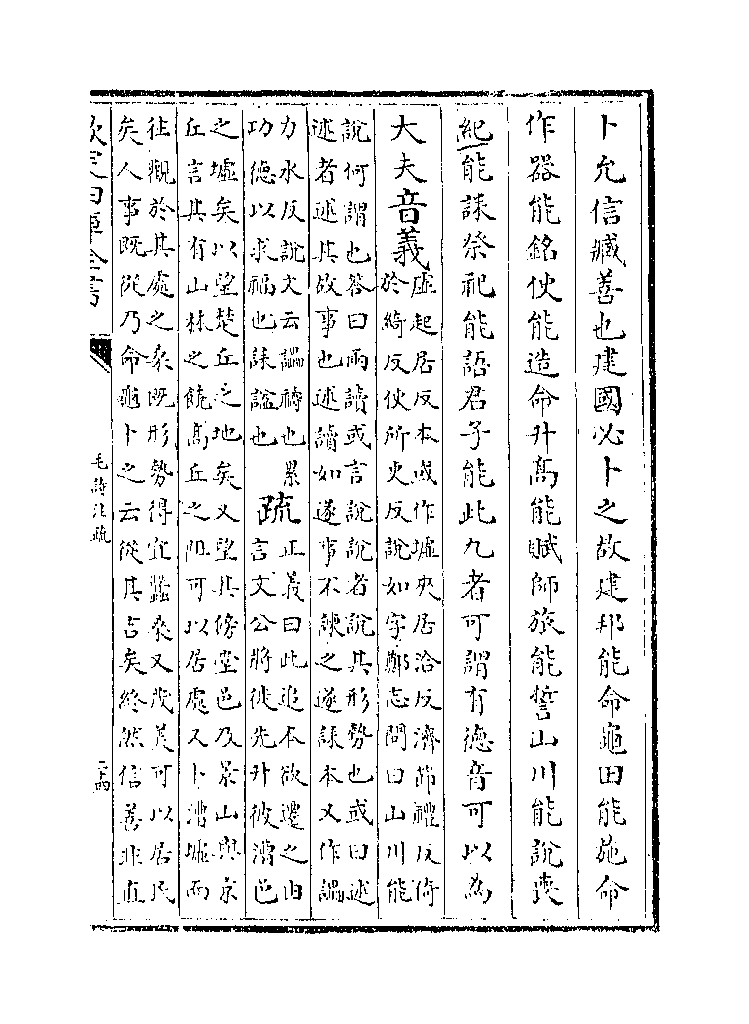 卜允信臧善也建國必卜之故建邦能命龜田能施命
作器能銘使能造命升髙能賦師旅能誓山川能說喪
紀能誄祭祀能語君子能此九者可謂有德音可以為
大夫音義
虚起居反本或作墟夾居洽反濟節禮反倚
於綺反使所吏反說如字鄭志問曰山川能
說何謂也答曰兩讀或言說說者說其形勢也或曰述
述者述其故事也述讀如遂事不諫之遂誄本又作讄
力水反說文云讄禱也累
功德以求福也誄諡也
疏
正義曰此追本欲遷之由
言文公將徙先升彼漕邑
之墟矣以望楚丘之地矣又望其傍堂邑及景山與京
丘言其有山林之饒髙丘之阻可以居處又卜漕墟而
往觀於其處之桑既形勢得宜蠶桑又茂美可以居民
矣人事既從乃命龜卜之云從其吉矣終然信善非直
欽定四庫全書
毛詩注疏